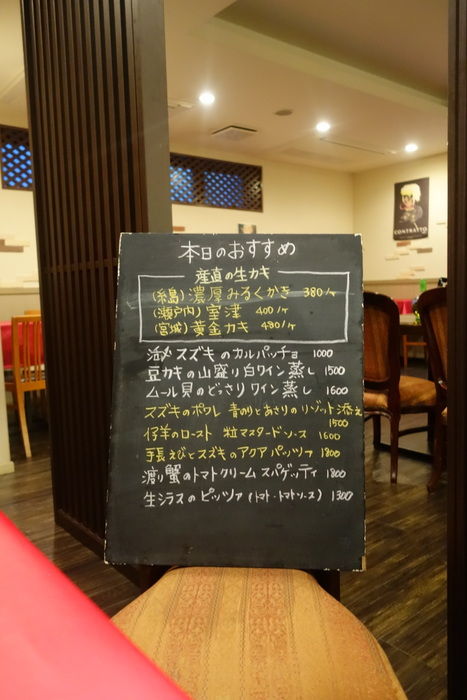 CONTRATTO
本日のおすすめ
産直の生カキ
(糸島) 濃厚みるくがき 380/ヶ
(瀬戸内) 室津 400/ヶ
(宮城) 黄金カキ 490/ヶ
活〆スズキのカルパッチョ 1000
豆カキの山盛り白ワイン蒸し 1500
ムール貝のどっさりワイン蒸し 1600
スズキのポワレ 青のりとあさりのリゾット添え
1500
仔羊のロースト 粒マスタードソース 1600
手長えびとスズキのアクアパッツァ 1800
渡り蟹のトマトクリームスパゲッティ 1800
生シラスのピッツァ (トマト・トマトソース) 1300